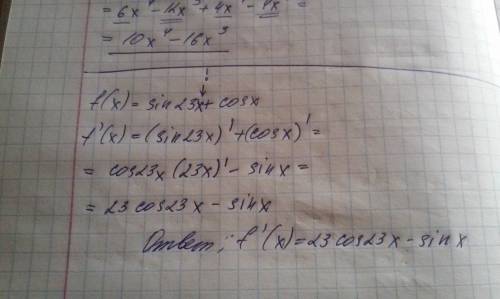 = 6x⁴ - 12x³ + 4x⁴ - 4x³ =
= 10x⁴ - 16x³
f(x) = sin23x + cosx
f'(x) = (sin23x)' + (cosx)' =
= cos23x (23x)' - sinx =
= 23 cos23x - sinx
Ответ: f'(x) = 23 cos23x - sinx